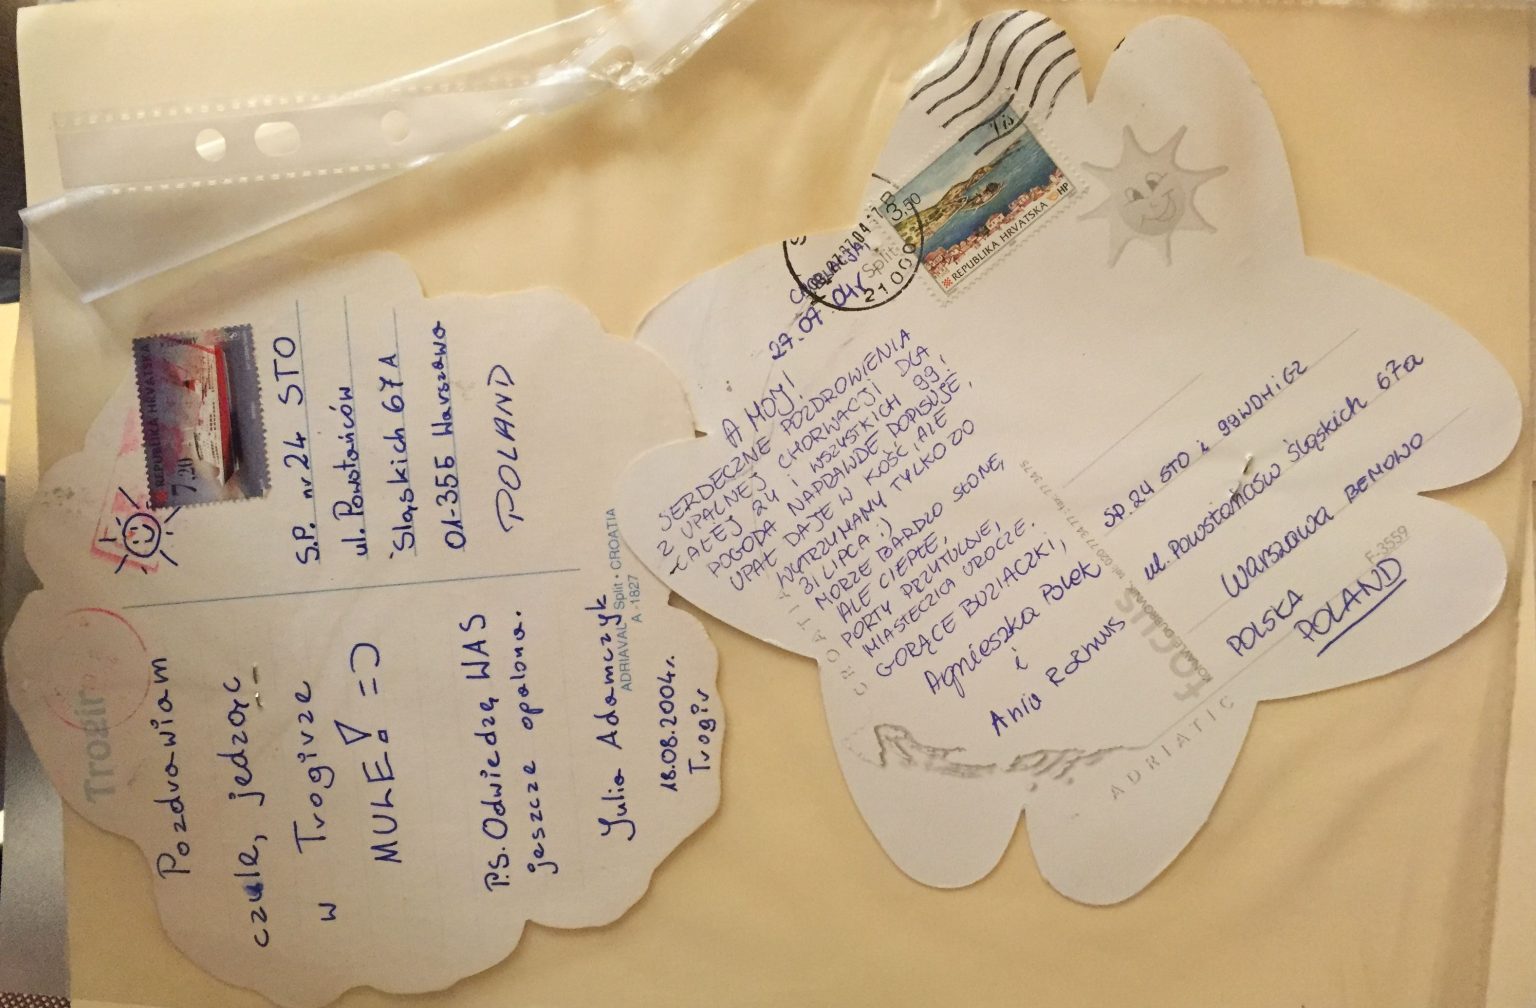 Trogir
Pozdrawiam
czule, jedząc
w Trogirze
MULE! =)
P.S. Odwiedzę WAS
jeszcze opalona.
Julia Adamczyk
18.08.2004r.
Trogir
REPUBLIKA HRVATSKA
7.20
S.P. nr 24 STO
ul. Powstańców
Śląskich 67A
01-355 Warszawa
POLAND
ADRIAVAL Split • CROATIA
A -1827
27.07.04r
AHOJ!
SERDECZNE POZDROWIENIA
Z UPALNEJ CHORWACJI DLA
CAŁEJ 24 i WSZYSTKICH 99!
POGODA NAPRAWDĘ DOPISUJE,
UPAŁ DAJE W KOŚĆ, ALE
WYTRZYMAMY TYLKO DO
31 LIPCA :)
MORZE BARDZO SŁONE,
ALE CIEPŁE,
PORTY PRZYTULNE,
MIASTECZKA UROCZE.
GORĄCE BUZIACZKI,
Agnieszka Polek
i
Ania Rozmus
Split
21000
3,50
Vis
REPUBLIKA HRVATSKA
HP
SP. 24 STO i 99WDHiGZ
ul. Powstańców Śląskich 67a
Warszawa BEMOWO
POLSKA
POLAND
CROATIA
ADRIATIC
focus
F-3559